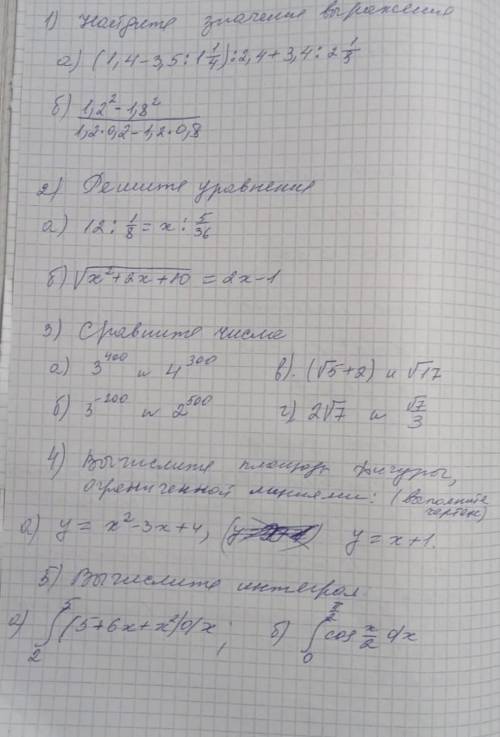 1) Найдите значения выражения
а) (1,4-3,5:1 1/4):2,4+3,4:2 1/3
б) (1,2²-1,8²)/(1,2·0,2-1,2·0,8)
2) Решите уравнение
а) 12:1/8=x:5/36
б) √(x²+2x+10) = 2x-1
3) Сравните числа
а) 3⁴⁰⁰ и 4³⁰⁰ в). (√5+2) и √17
б) 3⁻²⁰⁰ и 2⁵⁰⁰ г) 2√7 и √7/3
4) Вычислите площадь фигуры,
ограниченной линиями: (выполните
чертеж)
а) y = x²-3x+4, y = x+1.
5) Вычислите интеграл
а) ∫₂⁵(5+6x+x²)dx; б) ∫₀^(π/2) cos x/2 dx